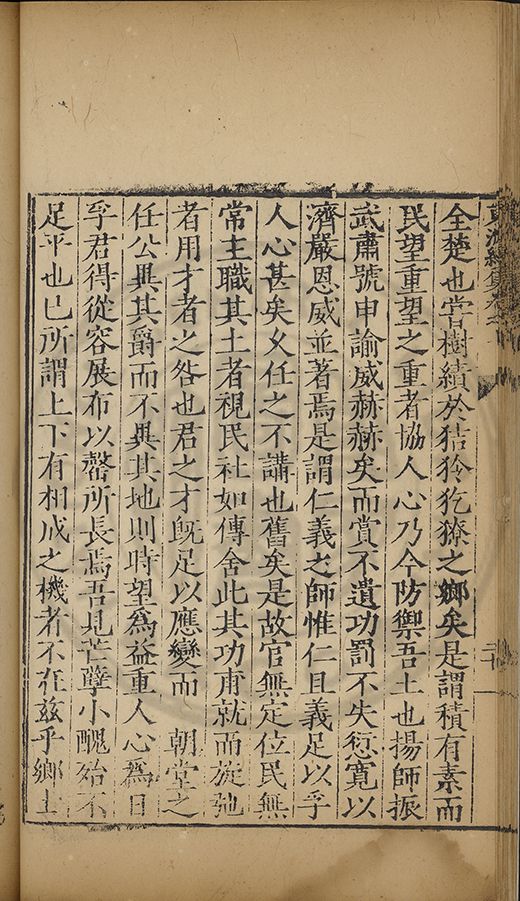 全楚也嘗樹績於狤狑犵獠之鄉矣是謂積有素而
民望重望之重者協人心乃今防禦吾土也揚師振
武肅號申諭威赫赫矣而賞不遺功罰不失愆寬以
濟嚴恩威並著焉是謂仁義之師惟仁且義足以孚
人心甚矣久任之不講也舊矣是故官無定位民無
常主職其土者視民社如傳舍此其功甫就而旋弛
者用才者之咎也君之才旣足以應變而　朝堂之
任公異其爵而不異其地則時望爲益重人心為日
孚君得從容展布以罄所長焉吾見芒孽小醜殆不
足平也已所謂上下有相成之機者不在茲乎鄉士